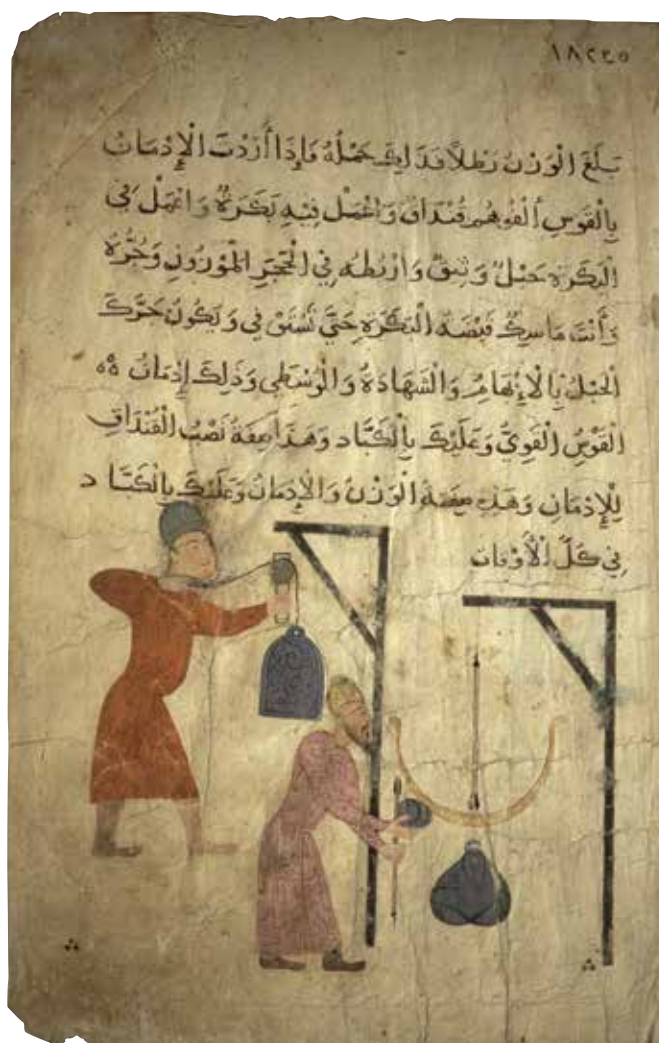 ١٨٢٣٥
بَلَغَ الْوَزْنُ رَطْلاً فَذَلِكَ حَمْلُهُ فَإِذَا أَرَدْتَ الْإِدْمَانَ
بِالْقَوْسِ وَاعْمَلْ فِيهِ بَكَرَةً وَاعْمَلْ فِي
الْبَكَرَةِ حَبْلٌ وَثِيقٌ وَارْبُطْهُ فِي الْحَجَرِ الْمَوْزُونِ وَجُرَّهُ
وَأَنْتَ مَاسِكٌ قَبْضَةَ الْبَكَرَةِ حَتَّى تَسْتَوْفِي وَيَكُونُ جَرَّكَ
الْحَبْلَ بِالْإِبْهَامِ وَالشَّهَادَةُ وَالْوُسْطَى وَذَلِكَ إِدْمَانُ
الْقَوْسِ الْقَوِيِّ وَعَلَيْكَ بِالْكَبَّاد وَهَذَا صِفَةُ نَصْبُ الْقُنْدَاقِ
لِلْإِدْمَانِ وَهَذِهِ صِفَةُ الْوَزْنُ وَالْإِدْمَانُ وَعَلَيْكَ بِالْكَبَّا د
فِي كُلِّ الْأَوْقَات